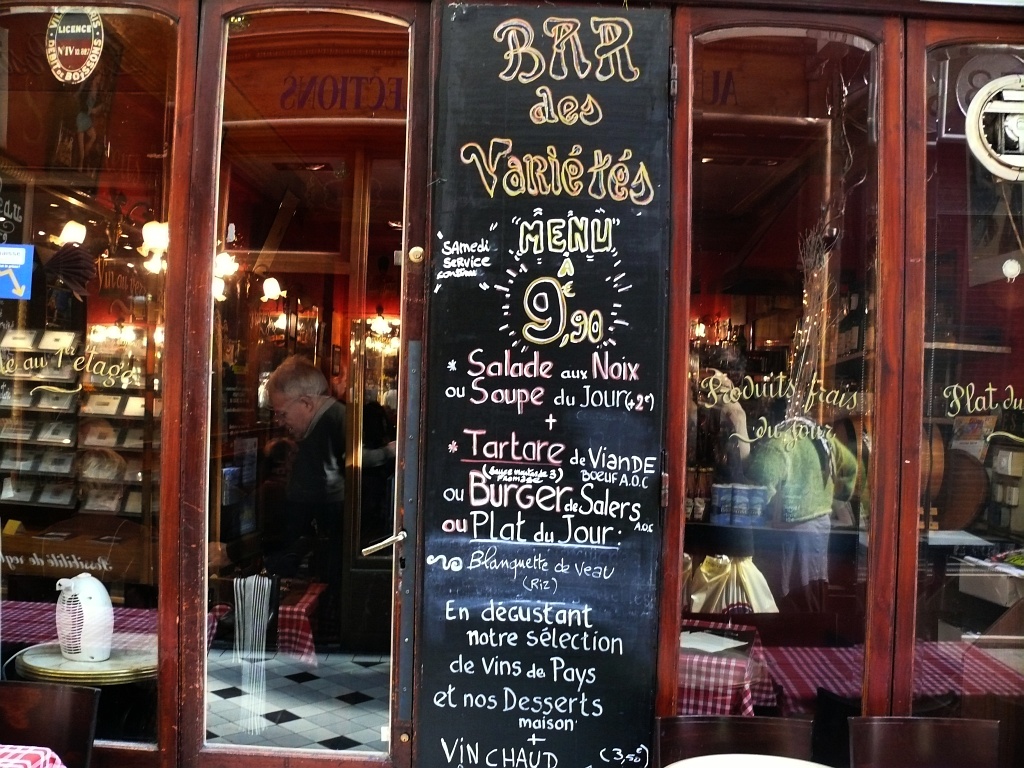 LICENCE
N° IV
DEBIT de BOISSONS
ECTIONS
AU
BAR
des
Variétés
"MENU"
SAMEDI
SERVICE
CONTINU
À
9,90
€
* Salade aux Noix
ou Soupe du Jour (+2€)
+
* Tartare de VIANDE
BOEUF A.O.C
ou BURGER de Salers
A.O.C
ou Plat du Jour:
Blanquette de veau
(Riz)
En dégustant
notre sélection
de Vins de Pays
et nos Desserts
maison
+
VIN CHAUD (3,50€)
e au 1er etage
Produits frais
du jour
Plat du